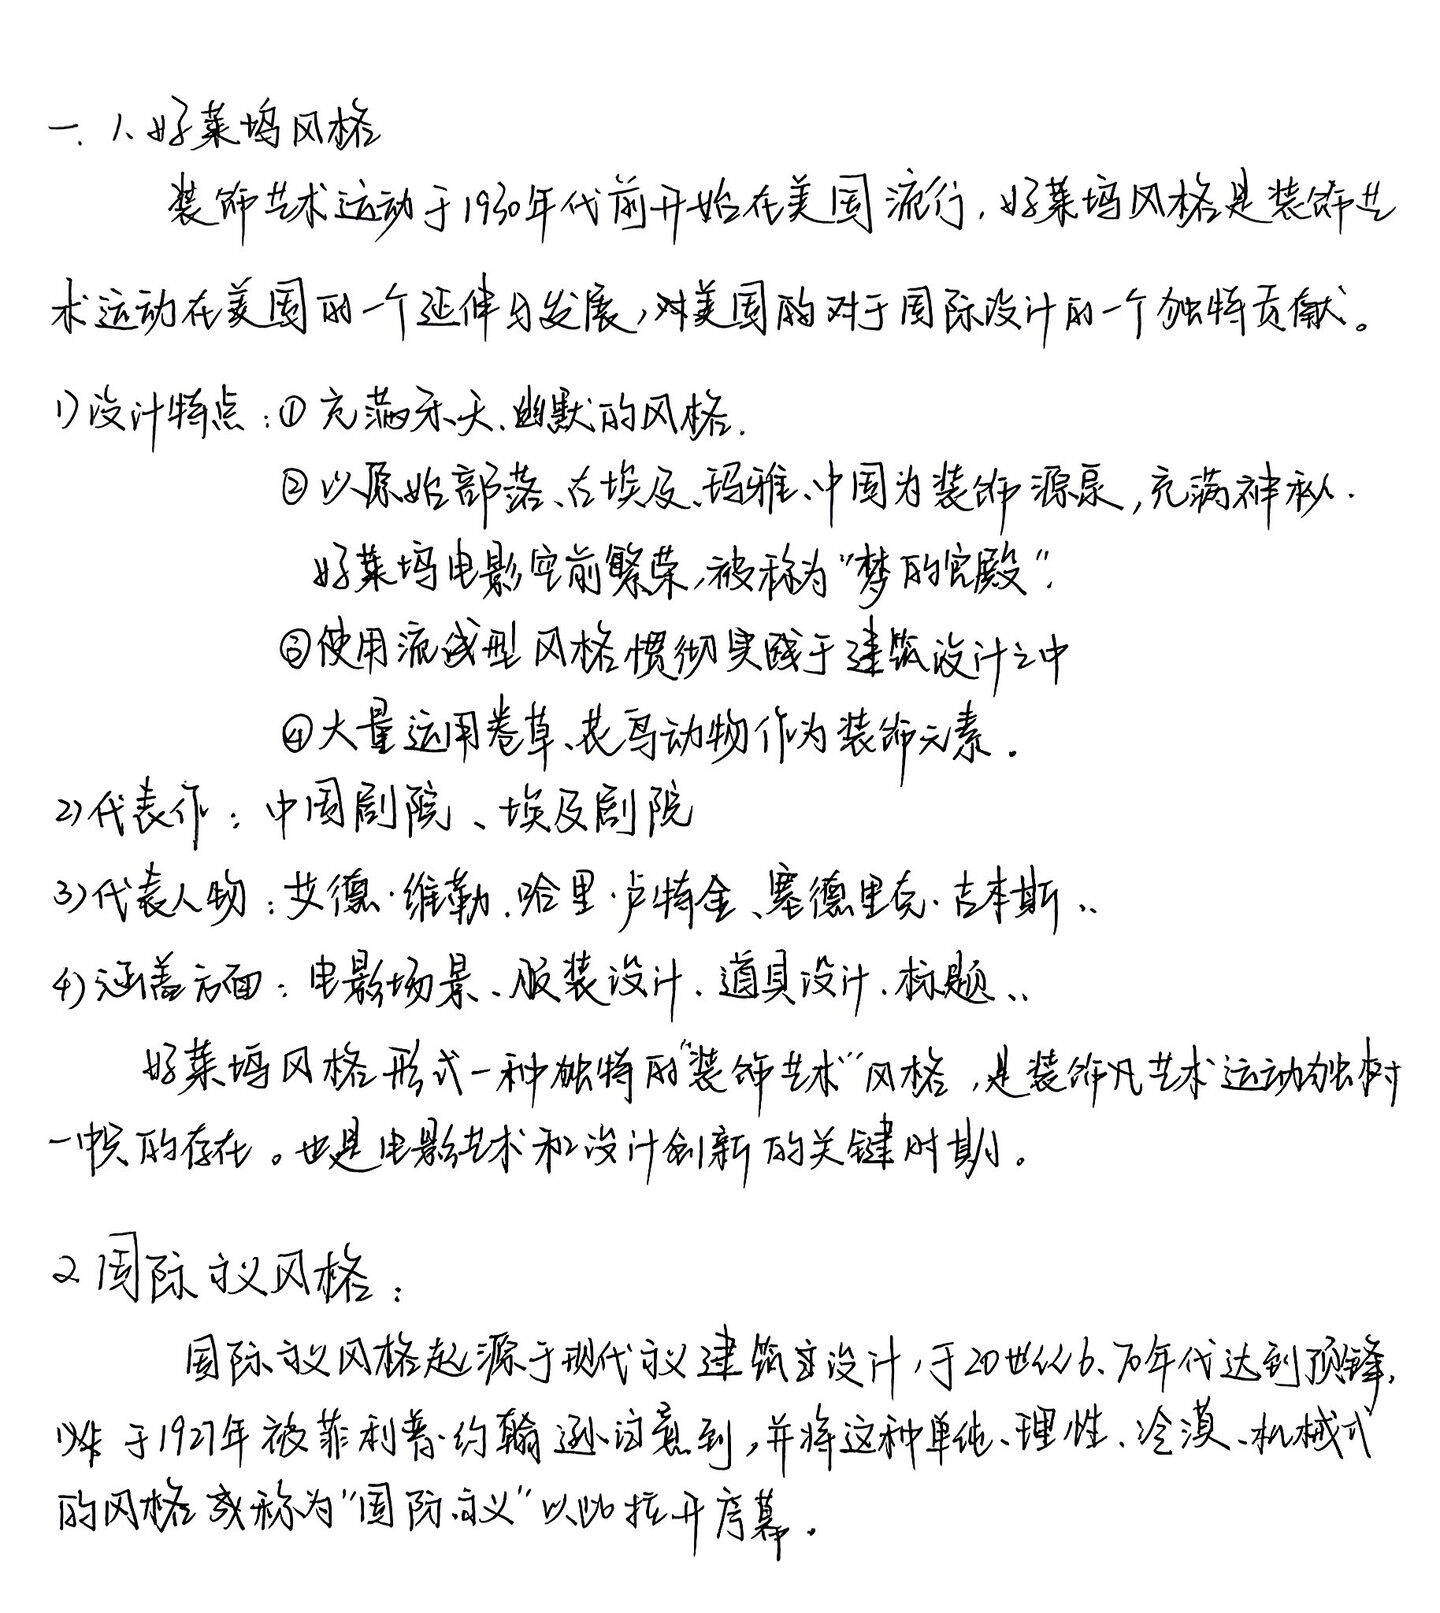 一、1、好莱坞风格
装饰艺术运动于1930年代前开始在美国流行，好莱坞风格是装饰艺
术运动在美国的一个延伸与发展，对美国的对于国际设计的一个独特贡献。
1)设计特点：①充满乐天、幽默的风格.
②以原始部落、古埃及、玛雅、中国为装饰源泉，充满神秘.
好莱坞电影空前繁荣，被称为“梦的宫殿”.
③使用流线型风格惯彻实践于建筑设计之中
④大量运用卷草、花鸟动物作为装饰元素.
2)代表作：中国剧院、埃及剧院
3)代表人物：艾德·维勒、哈里·卢特金、塞德里克·吉本斯、、
4)涵盖方面：电影场景、服装设计、道具设计、标题、、
好莱坞风格形式一种独特的“装饰艺术”风格，是装饰艺术运动独树
一帜的存在。也是电影艺术和设计创新的关键时期。
2 国际主义风格：
国际主义风格起源于现代主义建筑设计，于20世纪6、70年代达到顶锋，
于1927年被菲利普·约翰逊注意到，并将这种单纯、理性、冷漠、机械式
的风格或称为“国际主义”以此拉开序幕.